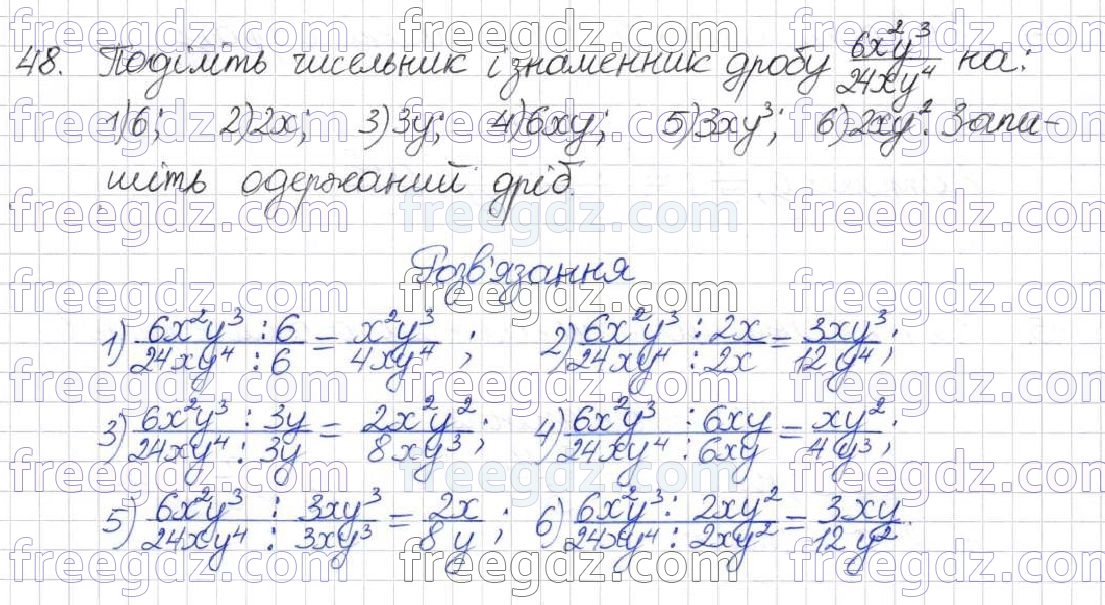 48. Поділіть чисельник і знаменник дробу 6x²y³/24xy⁴ на:
1) 6; 2) 2x; 3) 3y; 4) 6xy; 5) 3xy³; 6) 2xy². Запи-
шіть одержаний дріб.
Розв'язання
1) 6x²y³ : 6 / 24xy⁴ : 6 = x²y³ / 4xy⁴ ; 2) 6x²y³ : 2x / 24xy⁴ : 2x = 3xy³ / 12y⁴ ;
3) 6x²y³ : 3y / 24xy⁴ : 3y = 2x²y² / 8xy³ ; 4) 6x²y³ : 6xy / 24xy⁴ : 6xy = xy² / 4y³ ;
5) 6x²y³ : 3xy³ / 24xy⁴ : 3xy³ = 2x / 8y ; 6) 6x²y³ : 2xy² / 24xy⁴ : 2xy² = 3xy / 12y² .
freegdz.com